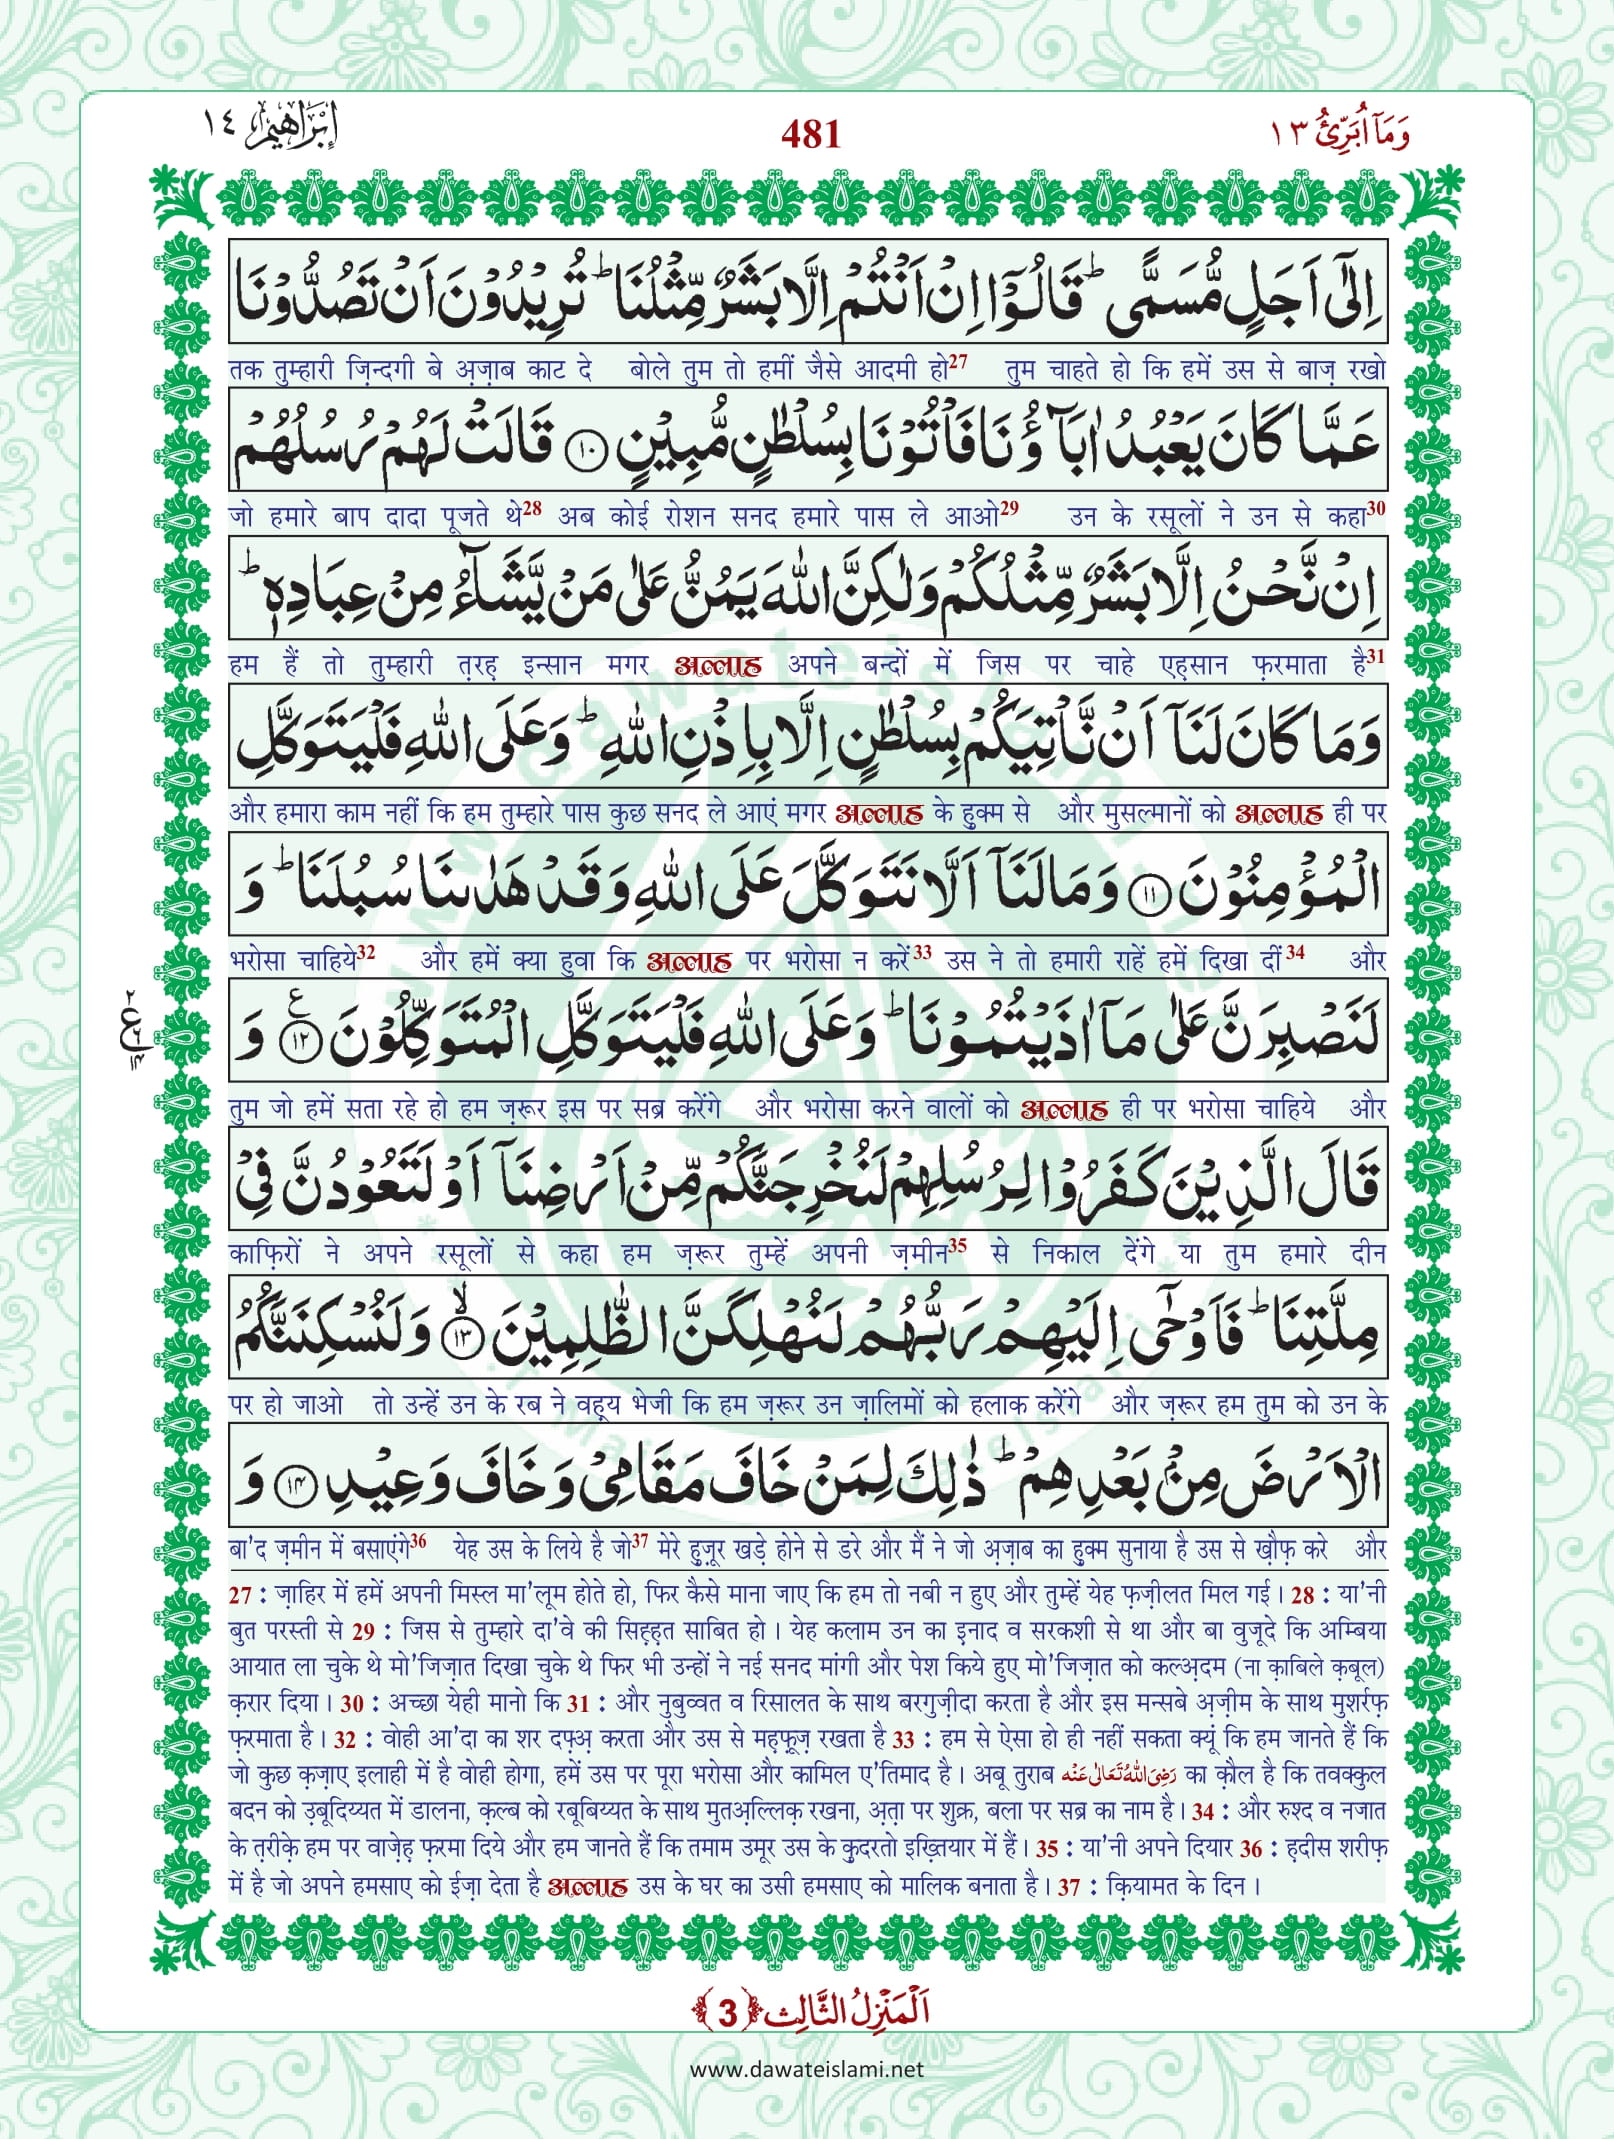 وَمَاۤ اُبَرِّئُ ١٣ 481 اِبْرٰهِيْم ١٤
اِلٰۤى اَجَلٍ مُّسَمًّى ؕ قَالُوْۤا اِنْ اَنْتُمْ اِلَّا بَشَرٌ مِّثْلُنَا ؕ تُرِيْدُوْنَ اَنْ تَصُدُّوْنَا
तक तुम्हारी ज़िन्दगी बे अ़ज़ाब काट दे बोले तुम तो हमीं जैसे आदमी हो27 तुम चाहते हो कि हमें उस से बाज़ रखो
عَمَّا كَانَ يَعْبُدُ اٰبَآؤُنَا فَاْتُوْنَا بِسُلْطٰنٍ مُّبِيْنٍ ﴿۱۰﴾ قَالَتْ لَهُمْ رُسُلُهُمْ
जो हमारे बाप दादा पूजते थे28 अब कोई रोशन सनद हमारे पास ले आओ29 उन के रसूलों ने उन से कहा30
اِنْ نَّحْنُ اِلَّا بَشَرٌ مِّثْلُكُمْ وَلٰكِنَّ اللّٰهَ يَمُنُّ عَلٰى مَنْ يَّشَآءُ مِنْ عِبَادِهٖ ؕ
हम हैं तो तुम्हारी त़रह़ इन्सान मगर अल्लाह अपने बन्दों में जिस पर चाहे एह़सान फ़रमाता है31
وَمَا كَانَ لَنَاۤ اَنْ نَّاْتِيَكُمْ بِسُلْطٰنٍ اِلَّا بِاِذْنِ اللّٰهِ ؕ وَعَلَى اللّٰهِ فَلْيَتَوَكَّلِ
और हमारा काम नहीं कि हम तुम्हारे पास कुछ सनद ले आएं मगर अल्लाह के हुक्म से और मुसल्मानों को अल्लाह ही पर
الْمُؤْمِنُوْنَ ﴿۱۱﴾ وَمَا لَنَاۤ اَلَّا نَتَوَكَّلَ عَلَى اللّٰهِ وَقَدْ هَدٰىنَا سُبُلَنَا ؕ وَ
भरोसा चाहिये32 और हमें क्या हुवा कि अल्लाह पर भरोसा न करें33 उस ने तो हमारी राहें हमें दिखा दीं34 और
لَنَصْبِرَنَّ عَلٰى مَاۤ اٰذَيْتُمُوْنَا ؕ وَعَلَى اللّٰهِ فَلْيَتَوَكَّلِ الْمُتَوَكِّلُوْنَ ﴿۱۲﴾ ع وَ
٢ ع ٦ ١٤
तुम जो हमें सता रहे हो हम ज़रूर इस पर सब्र करेंगे और भरोसा करने वालों को अल्लाह ही पर भरोसा चाहिये और
قَالَ الَّذِيْنَ كَفَرُوْا لِرُسُلِهِمْ لَنُخْرِجَنَّكُمْ مِّنْ اَرْضِنَاۤ اَوْ لَتَعُوْدُنَّ فِيْ
काफ़िरों ने अपने रसूलों से कहा हम ज़रूर तुम्हें अपनी ज़मीन35 से निकाल देंगे या तुम हमारे दीन
مِلَّتِنَا ؕ فَاَوْحٰۤى اِلَيْهِمْ رَبُّهُمْ لَنُهْلِكَنَّ الظّٰلِمِيْنَ ﴿ۙ۱۳﴾ وَلَنُسْكِنَنَّكُمُ
पर हो जाओ तो उन्हें उन के रब ने वह़्य भेजी कि हम ज़रूर उन ज़ालिमों को हलाक करेंगे और ज़रूर हम तुम को उन के
الْاَرْضَ مِنْۢ بَعْدِهِمْ ؕ ذٰلِكَ لِمَنْ خَافَ مَقَامِيْ وَخَافَ وَعِيْدِ ﴿۱۴﴾ وَ
बा'द ज़मीन में बसाएंगे36 येह उस के लिये है जो37 मेरे हुज़ूर खड़े होने से डरे और मैं ने जो अ़ज़ाब का हुक्म सुनाया है उस से ख़ौफ़ करे और
27 : ज़ाहिर में हमें अपनी मिस्ल मा'लूम होते हो, फिर कैसे माना जाए कि हम तो नबी न हुए और तुम्हें येह फ़ज़ीलत मिल गई। 28 : या'नी
बुत परस्ती से 29 : जिस से तुम्हारे दा'वे की सिह़्ह़त साबित हो। येह कलाम उन का इनाद व सरकशी से था और बा वुजूदे कि अम्बिया
आयात ला चुके थे मो'जिज़ात दिखा चुके थे फिर भी उन्हों ने नई सनद मांगी और पेश किये हुए मो'जिज़ात को कल्अ़दम (ना क़ाबिले क़बूल)
क़रार दिया। 30 : अच्छा येही मानो कि 31 : और नुबुव्वत व रिसालत के साथ बरगुज़ीदा करता है और इस मन्सबे अ़ज़ीम के साथ मुशर्रफ़
फ़रमाता है। 32 : वोही आ'दा का शर दफ़्अ़ करता और उस से मह़फ़ूज़ रखता है 33 : हम से ऐसा हो ही नहीं सकता क्यूं कि हम जानते हैं कि
जो कुछ क़ज़ाए इलाही में है वोही होगा, हमें उस पर पूरा भरोसा और कामिल ए'तिमाद है। अबू तुराब رَضِىَ اللّٰهُ تَعَالٰى عَنْه का क़ौल है कि तवक्कुल
बदन को उ़बूदिय्यत में डालना, क़ल्ब को रबूबिय्यत के साथ मुतअ़ल्लिक़ रखना, अ़त़ा पर शुक्र, बला पर सब्र का नाम है। 34 : और रुश्द व नजात
के त़रीक़े हम पर वाज़ेह़ फ़रमा दिये और हम जानते हैं कि तमाम उमूर उस के क़ुदरतो इख़्तियार में हैं। 35 : या'नी अपने दियार 36 : ह़दीस शरीफ़
में है जो अपने हमसाए को ईज़ा देता है अल्लाह उस के घर का उसी हमसाए को मालिक बनाता है। 37 : क़ियामत के दिन।
اَلْمَنْزِلُ الثَّالِث ﴿3﴾
www.dawateislami.net